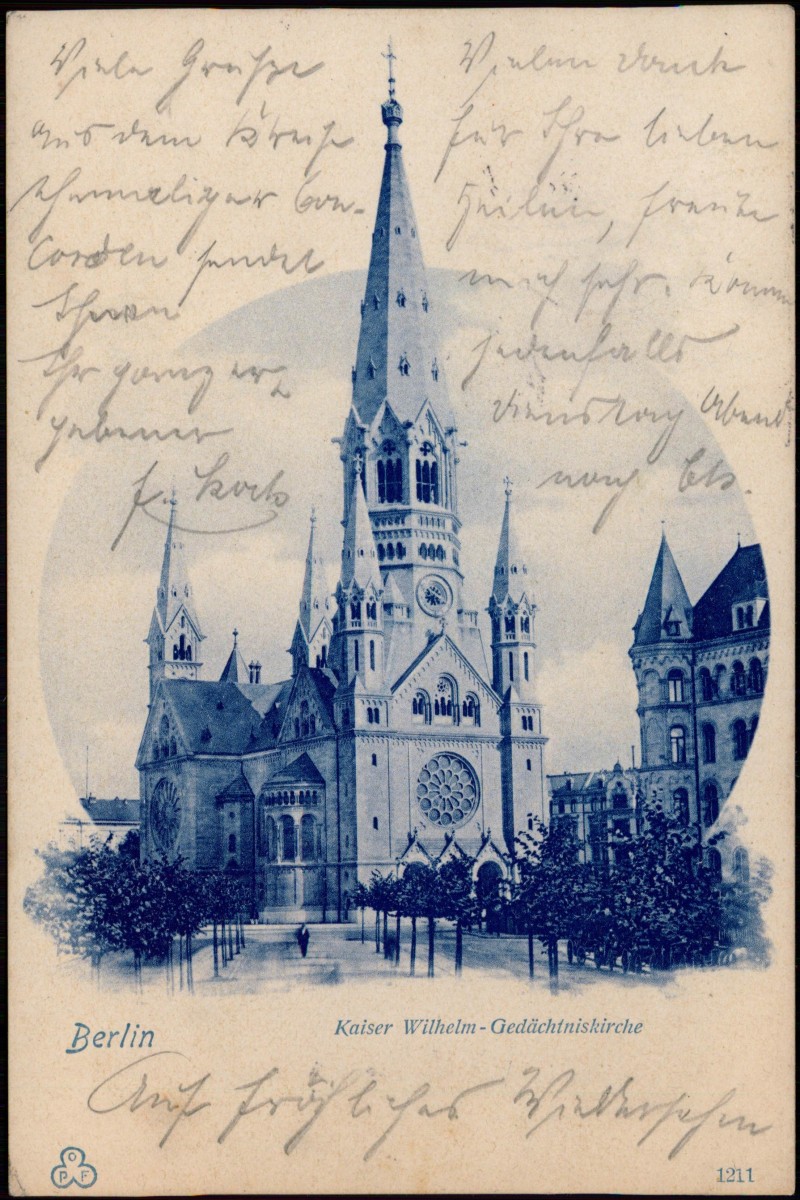 Viele Grüße
aus dem Kreise
ehemaliger Con-
corden sendet
Ihnen
Ihr ganz er-
gebener
F. Koch
Vielen Dank
für Ihre lieben
Zeilen, freute
mich sehr. Komme
jedenfalls
Dienstag Abend
nach
Berlin
Kaiser Wilhelm-Gedächtniskirche
Auf fröhliches Wiedersehen
O
P F
1211